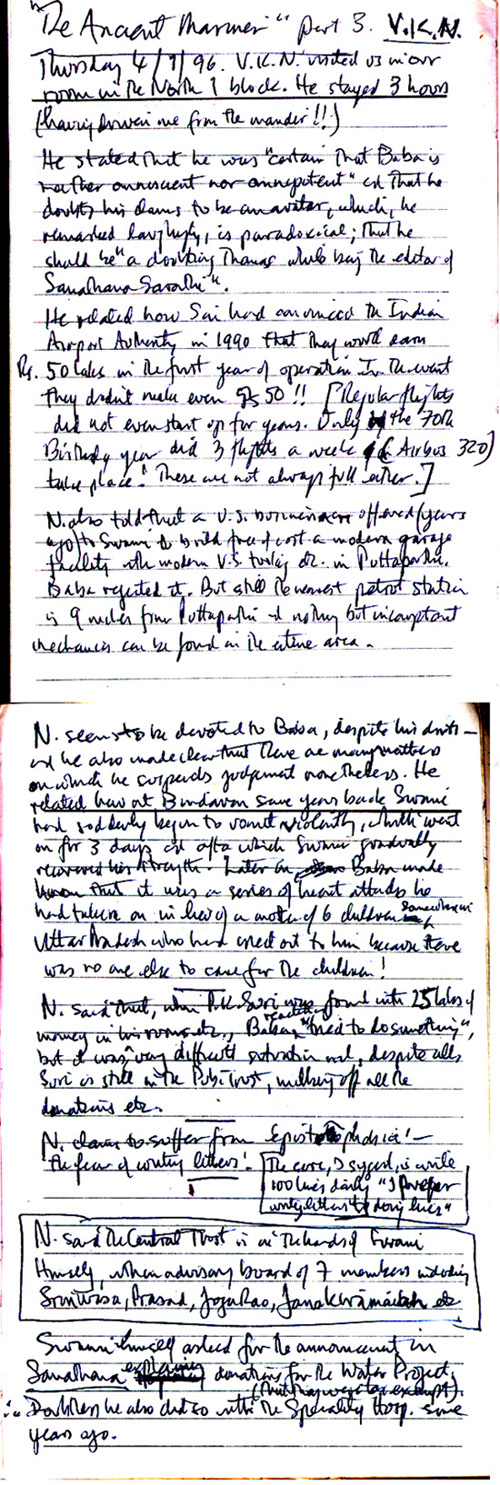 "The Ancient Mariner" part 3. V.K.N.
Thursday 4/7/96. V.K.N. visited us in our
room in the North 1 block. He stayed 3 hours
(having driven me from the mandir!!)
He stated that he was "certain that Baba is
neither omniscient nor omnipotent" and that he
doubts his claims to be an avatar, which, he
remarked laughingly, is paradoxical; that he
should be "a doubting Thomas while being the editor of
Sanathana Sarathi".
He related how Sai had convinced the Indian
Airport Authority in 1990 that they would earn
Rs. 50 lakhs in the first year of operation. In the event
they didn't make even Rs 50!! [Regular flights
did not even start up for years. Only by the 70th
Birthday year did 3 flights a week (Airbus 320)
take place! These are not always full either.]
N. also told that a U.S. businessman offered (years
ago) to Swami to build free of cost a modern garage
facility with modern U.S. tooling etc. in Puttaparthi.
Baba rejected it. But still the nearest petrol station
is 9 miles from Puttaparthi and nothing but incompetent
mechanics can be found in the entire area.
N. seems to be devoted to Baba, despite his doubts -
and he also made clear that there are many matters
on which he suspends judgement nonetheless. He
related how at Brindavan some years back Swami
had suddenly begun to vomit violently, which went
on for 3 days and after which Swami gradually
recovered his strength. Later on Baba made
known that it was a series of heart attacks he
had taken on in lieu of a mother of 6 children somewhere in
Uttar Pradesh who had cried out to him because there
was no one else to care for the children!
N. said that, when P.K. Suri was found with 25 lakhs of
money in his rooms etc., Baba "tried to do something",
but it was very difficult and, despite all,
Suri is still in the Publ. Trust, milking off all the
donations etc.
N. claims to suffer from 'epistolophobia'! -
'the fear of writing letters'.
The cure, I suggest, is write
100 lines daily "I prefer
writing letters to doing lines"
N. said the Central Trust is in the hands of Swami
Himself, with an advisory board of 7 members including
Srinivasa, Prasad, Joga Rao, Janakiramaiah etc
Swami himself asked for the announcement in
Sanathana explaining donations for the Water Project,
(that they were tax exempt).
∴ Doubtless he also did so with the Speciality Hosp. some
years ago.